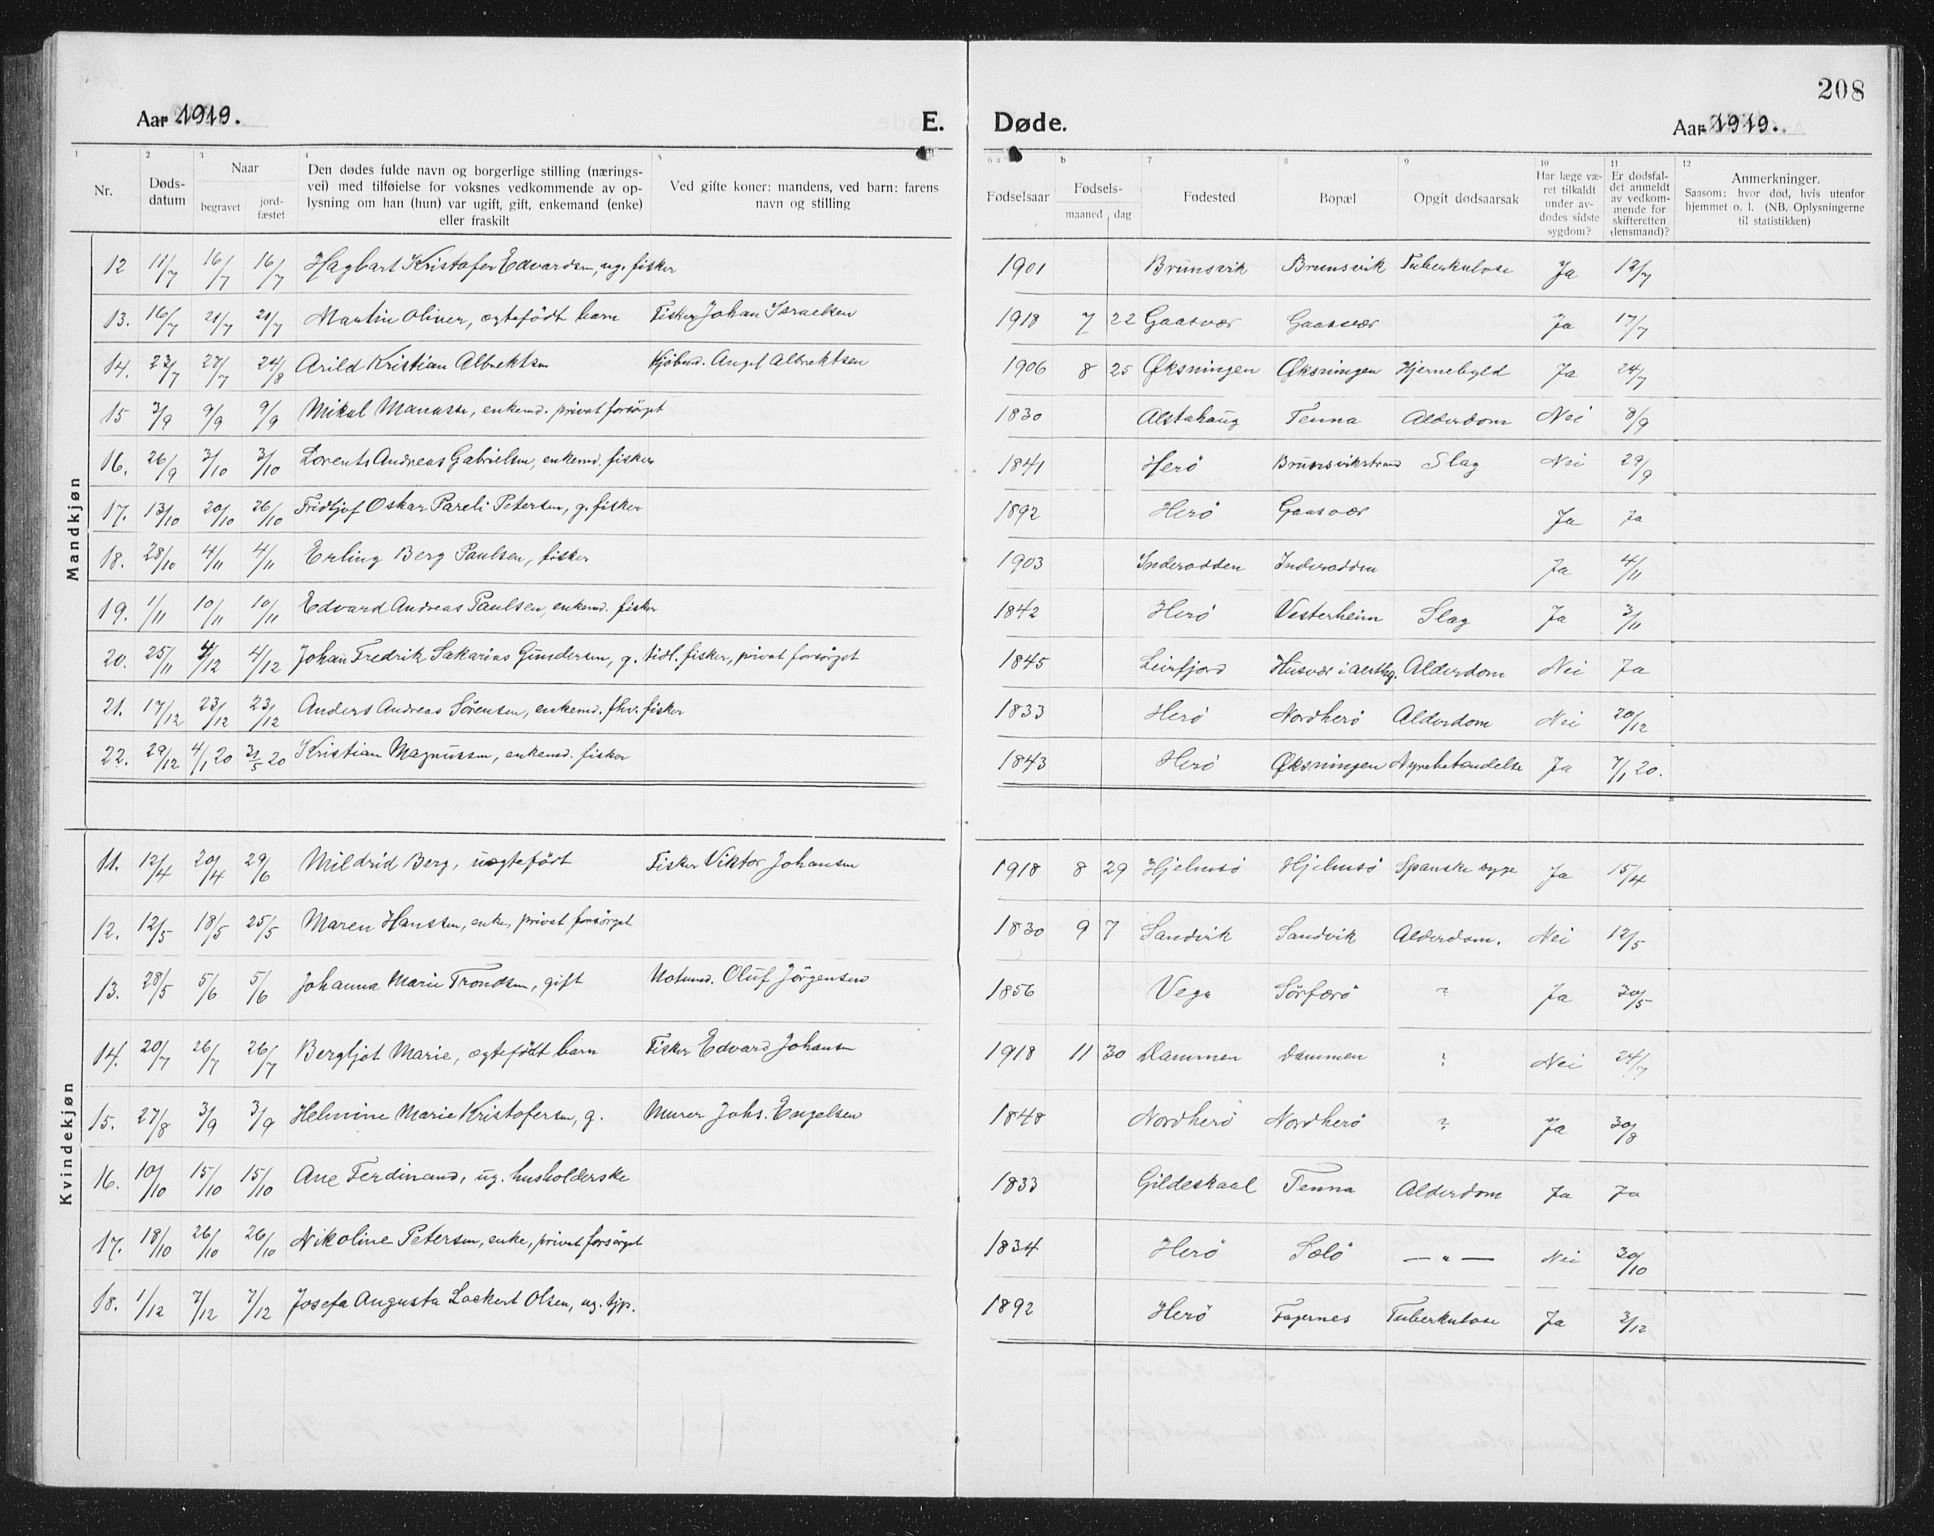 208
Aar 1919. E. Døde. Aar 1919.
1 2 3 4 5 6 a b 7 8 9 10 11 12
Nr. Døds-datum Naar begravet jord-fæstet Den dødes fulde navn og borgerlige stilling (nærings-vei) med tilføielse for voksnes vedkommende av op-lysning om han (hun) var ugift, gift, enkemand (enke) eller fraskilt Ved gifte koner: mandens, ved barn: farens navn og stilling Fødselsaar Fødsels- maaned dag Fødested Bopæl Opgit dødsaarsak Har læge væ-ret tilkaldt under av-dødes sidste sygdom? Er dødsfal-det anmeldt av vedkom-mende for skifteretten (lensmand)? Anmerkninger. Saasom: hvor død, hvis utenfor hjemmet o. l. (NB. Oplysningerne til statistikken)
Mandkjøn
12 11/7 16/7 16/7 Hagbart Kristofer Edvardsen, ug. fisker 1901 Brunsvik Brunsvik Tuberkulose Ja 12/7
13. 16/7 21/7 21/7 Martin Oliver, egtefödt barn Fisker Johan Israelsen 1918 7 22 Gaasvær Gaasvær Ja 17/7
14. 23/7 27/7 24/8 Arild Kristian Albrektsen Kjöbmd. Angel Albrektsen 1906 8 25 Øksningen Øksningen Hjernebyld Ja 24/7
15 3/9 9/9 9/9 Mikal Manasse, enkemd. privat forsörget 1830 Alstahaug Tenna Alderdom Nei 8/9
16. 26/9 3/10 3/10 Lorents Andreas Gabrielsen, enkemd. fisker 1841 Herö Brunsvikstrand Slag Nei 29/9
17. 13/10 20/10 26/10 Fridtjof Oskar Pareli Petersen, g. fisker 1892 Herö Gaasvær Ja Ja
18. 28/10 4/11 4/11 Erling Berg Paulsen, fisker 1903 Inderodden Inderodden Ja 4/11
19. 1/11 10/11 10/11 Edvard Andreas Paulsen, enkemd. fisker 1842 Herö Vesterheim Slag Ja 3/11
20. 25/11 4/12 4/12 Johan Fredrik Sakarias Gundersen, g. tidl. fisker, privat forsörget 1845 Leirfjord Husvær i Alsthg. Alderdom Nei Ja
21. 17/12 23/12 23/12 Anders Andreas Sörensen, enkemd. fhv. fisker 1833 Herö Nordherö Alderdom Nei 20/12
22. 29/12 4/1 20 31/5 20 Kristian Magnussen, enkemd. fisker 1843 Herö Øksningen Nyrebetændelse Ja 7/1 20.
Kvindekjøn
11. 12/4 20/4 29/6 Mildrid Berg, uegtefödt Fisker Viktor Johansen 1918 8 29 Hjelmsö Hjelmsö Spanske syge Ja 15/4
12. 12/5 18/5 25/5 Maren Hanssen, enke, privat forsörget 1830 9 7 Sandvik Sandvik Alderdom. Nei 12/5
13. 28/5 5/6 5/6 Johanna Marie Trondsen, gift Notmd. Oluf Jörgensen 1856 Vega Sörfærö ? Ja 30/5
14. 20/7 26/7 26/7 Bergljot Marie, egtefödt barn Fisker Edvard Johansen 1918 11 30 Dammen Dammen ? Nei 24/7
15. 27/8 3/9 3/9 Helmine Marie Kristofersen, g. Murer Johs. Engelsen 1848 Nordherö Nordherö ? Ja 30/8
16. 10/10 15/10 15/10 Ane Ferdinand, ug. husholderske 1833 Gildeskaal Tenna Alderdom Ja Ja
17. 18/10 26/10 26/10 Nikoline Petersen, enke, privat forsörget 1834 Herö Sölö — " — Nei 30/10
18. 1/12 7/12 7/12 Josefa Augusta Lockert Olsen, ug. tjp. 1892 Herö Fagernes Tuberkulose Ja 3/12